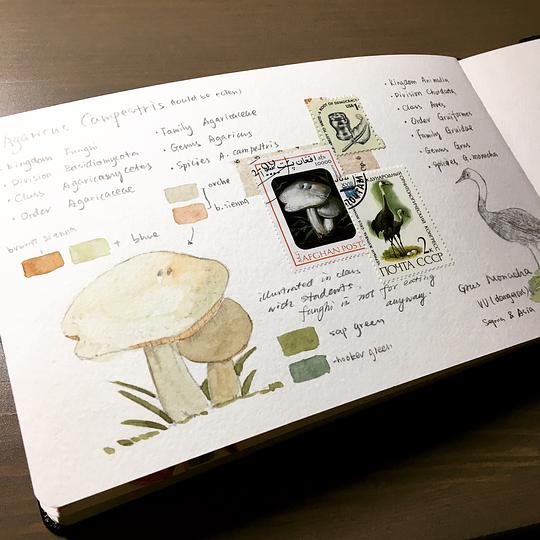 Agaricus Campestris (could be eaten)
Kingdom Funghi
Division Basidiomyota
• Class Agaricomycetes
• Order Agaricaceae
• Family Agaricaceae
• Genus Agaricus
• Spicies A. campestris
orche
b. sienna
burnt sienna
+ blue
ROOT OF DEMOCRACY
USA 1c
افغان پست
10000
AFGHAN POST
2к
ПОЧТА СССР
illustrated in class
with students.
funghi is not for eating
anyway.
sap green
hooker green
• Kingdom Animalia
• Division Chordata
• Class Aves
• Order Gruiformes
• Family Gruidae
• Genus Grus
• Species G. monacha
Grus Monacha
VU (dangerous)
& Asia